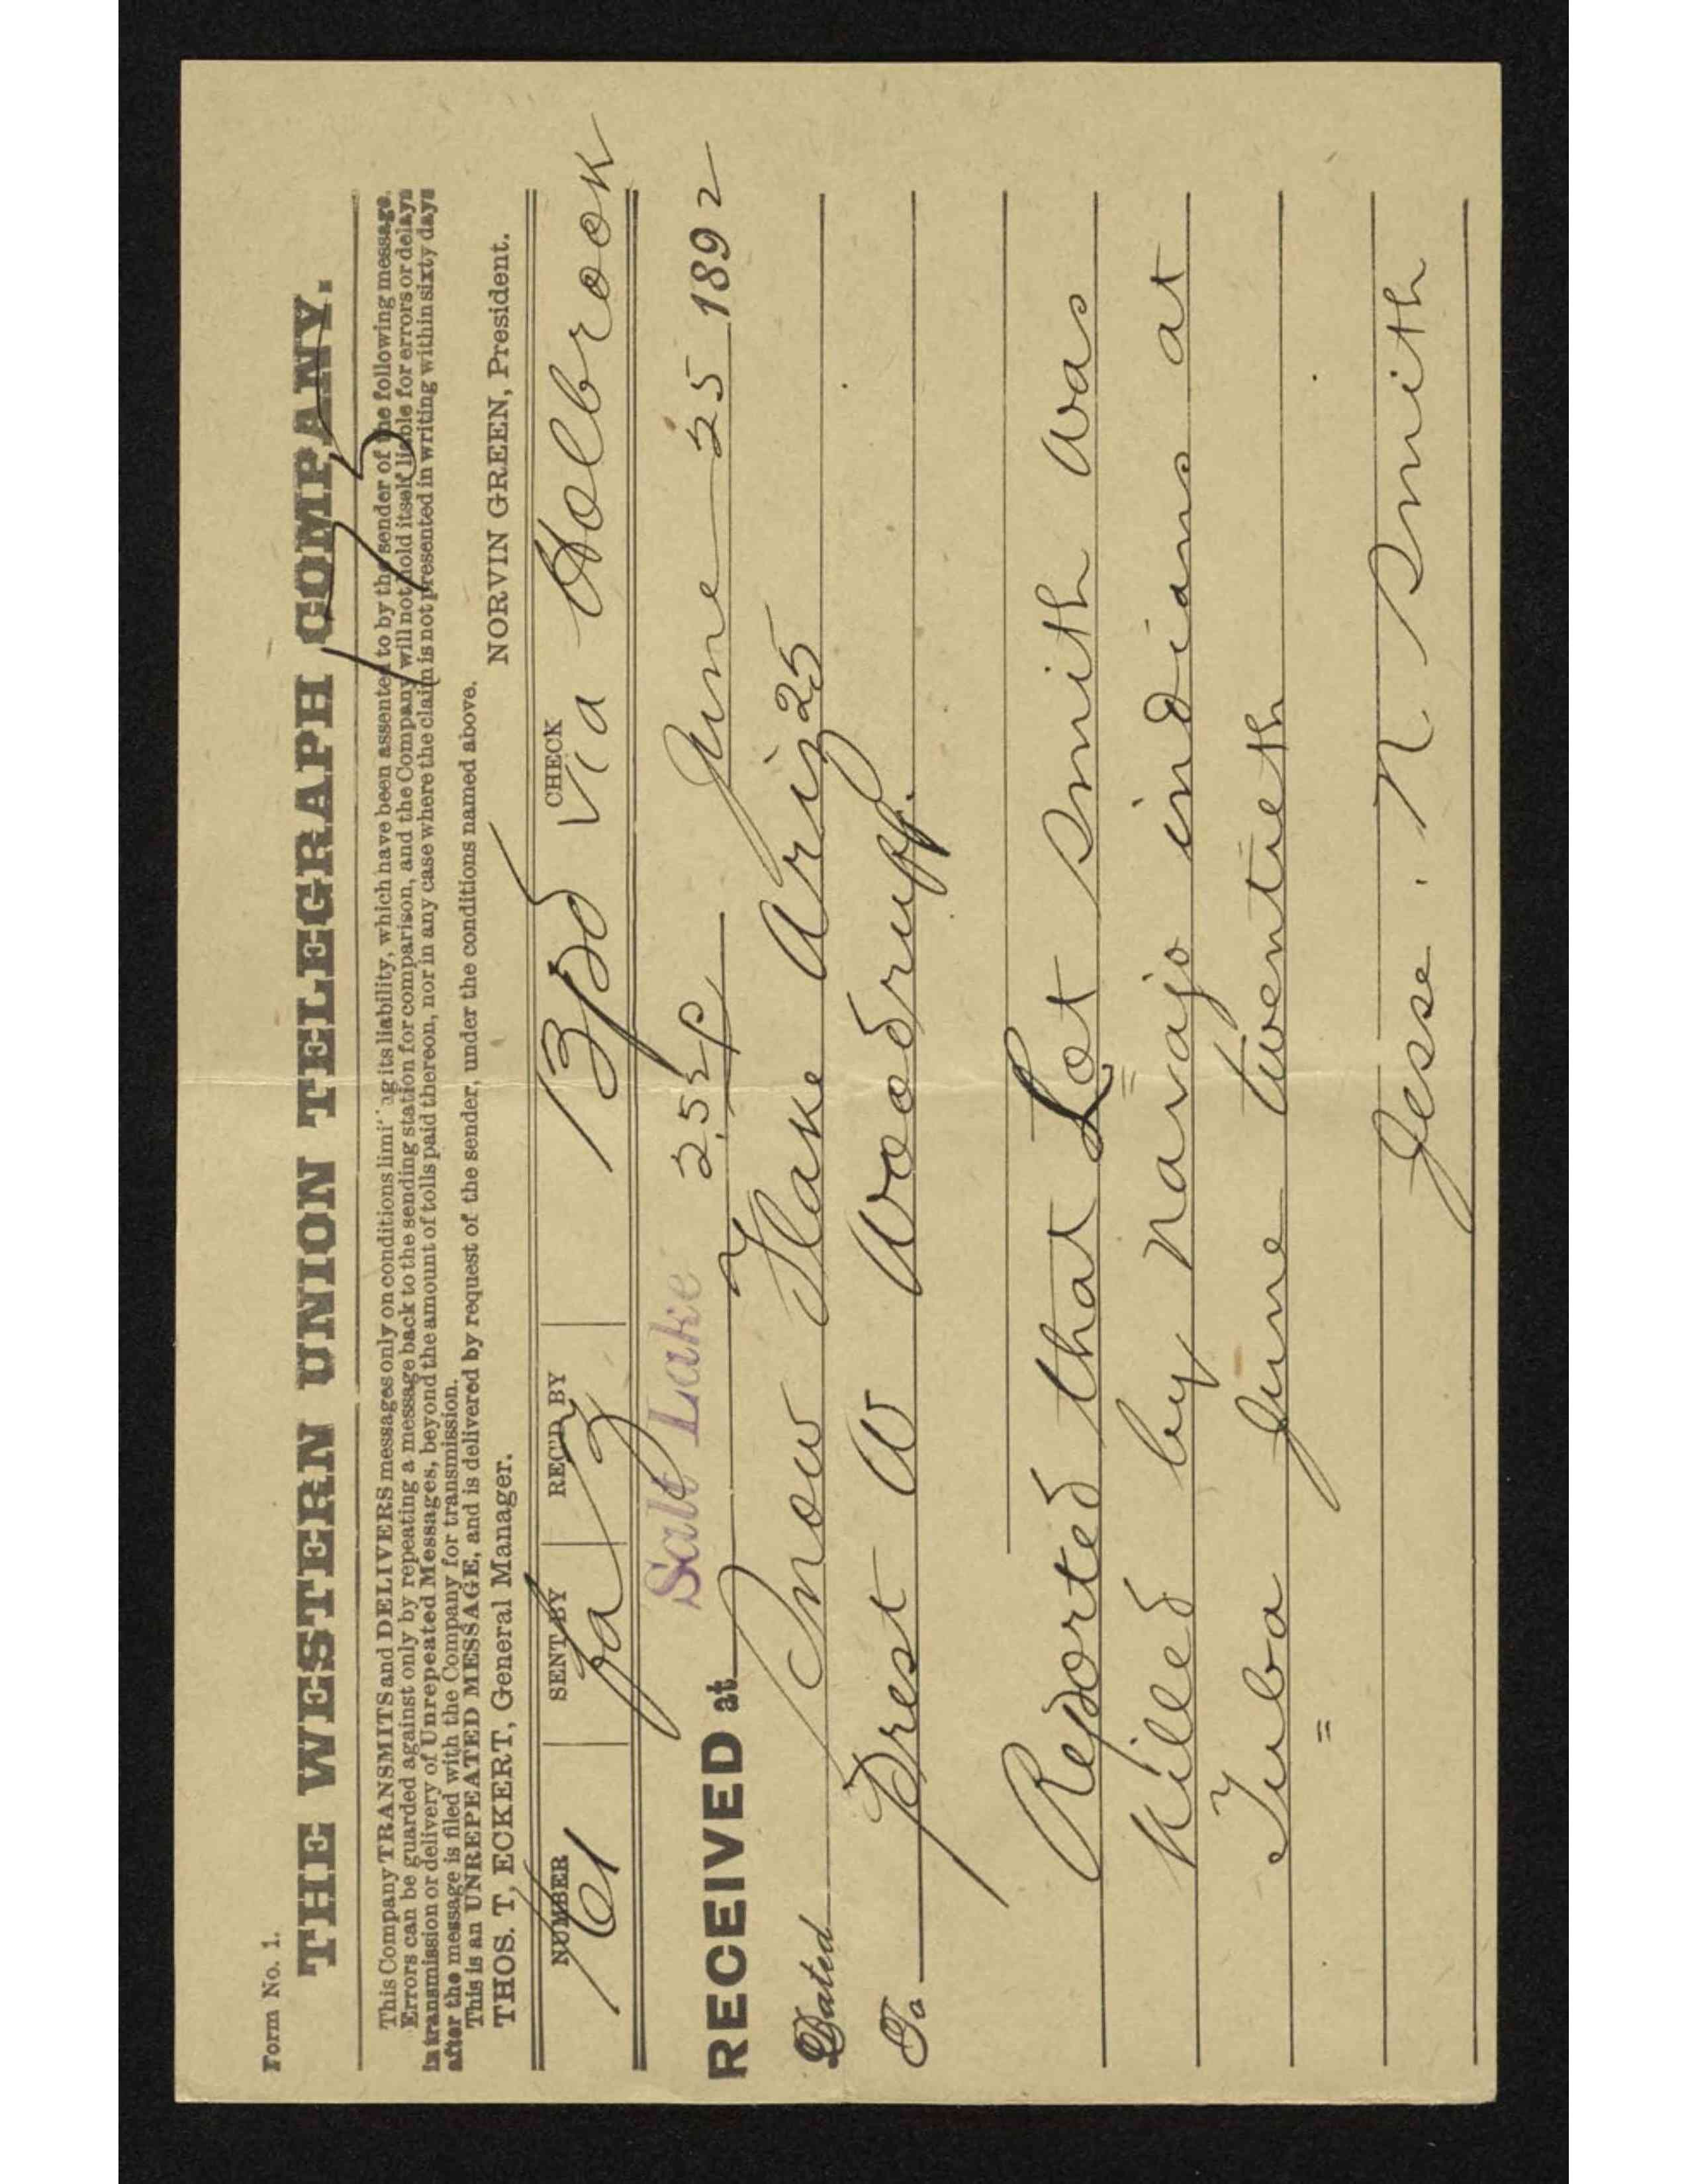 Form No. 1.
THE WESTERN UNION TELEGRAPH COMPANY.
This Company TRANSMITS and DELIVERS messages only on conditions limiting its liability, which have been assented to by the sender of the following message.
Errors can be guarded against only by repeating a message back to the sending station for comparison, and the Company will not hold itself liable for errors or delays
in transmission or delivery of Unrepeated Messages, beyond the amount of tolls paid thereon, nor in any case where the claim is not presented in writing within sixty days
after the message is filed with the Company for transmission.
This is an UNREPEATED MESSAGE, and is delivered by request of the sender, under the conditions named above.
THOS. T. ECKERT, General Manager. NORVIN GREEN, President.
NUMBER SENT BY REC'D BY CHECK
Via Holbrook
RECEIVED at Salt Lake June 25 1892
Dated Snow Flake Ariz 25
To Prest W Woodruff.
Reported that Lot Smith was
killed by navajo indians at
Tuba June twentieth
Jesse. N Smith